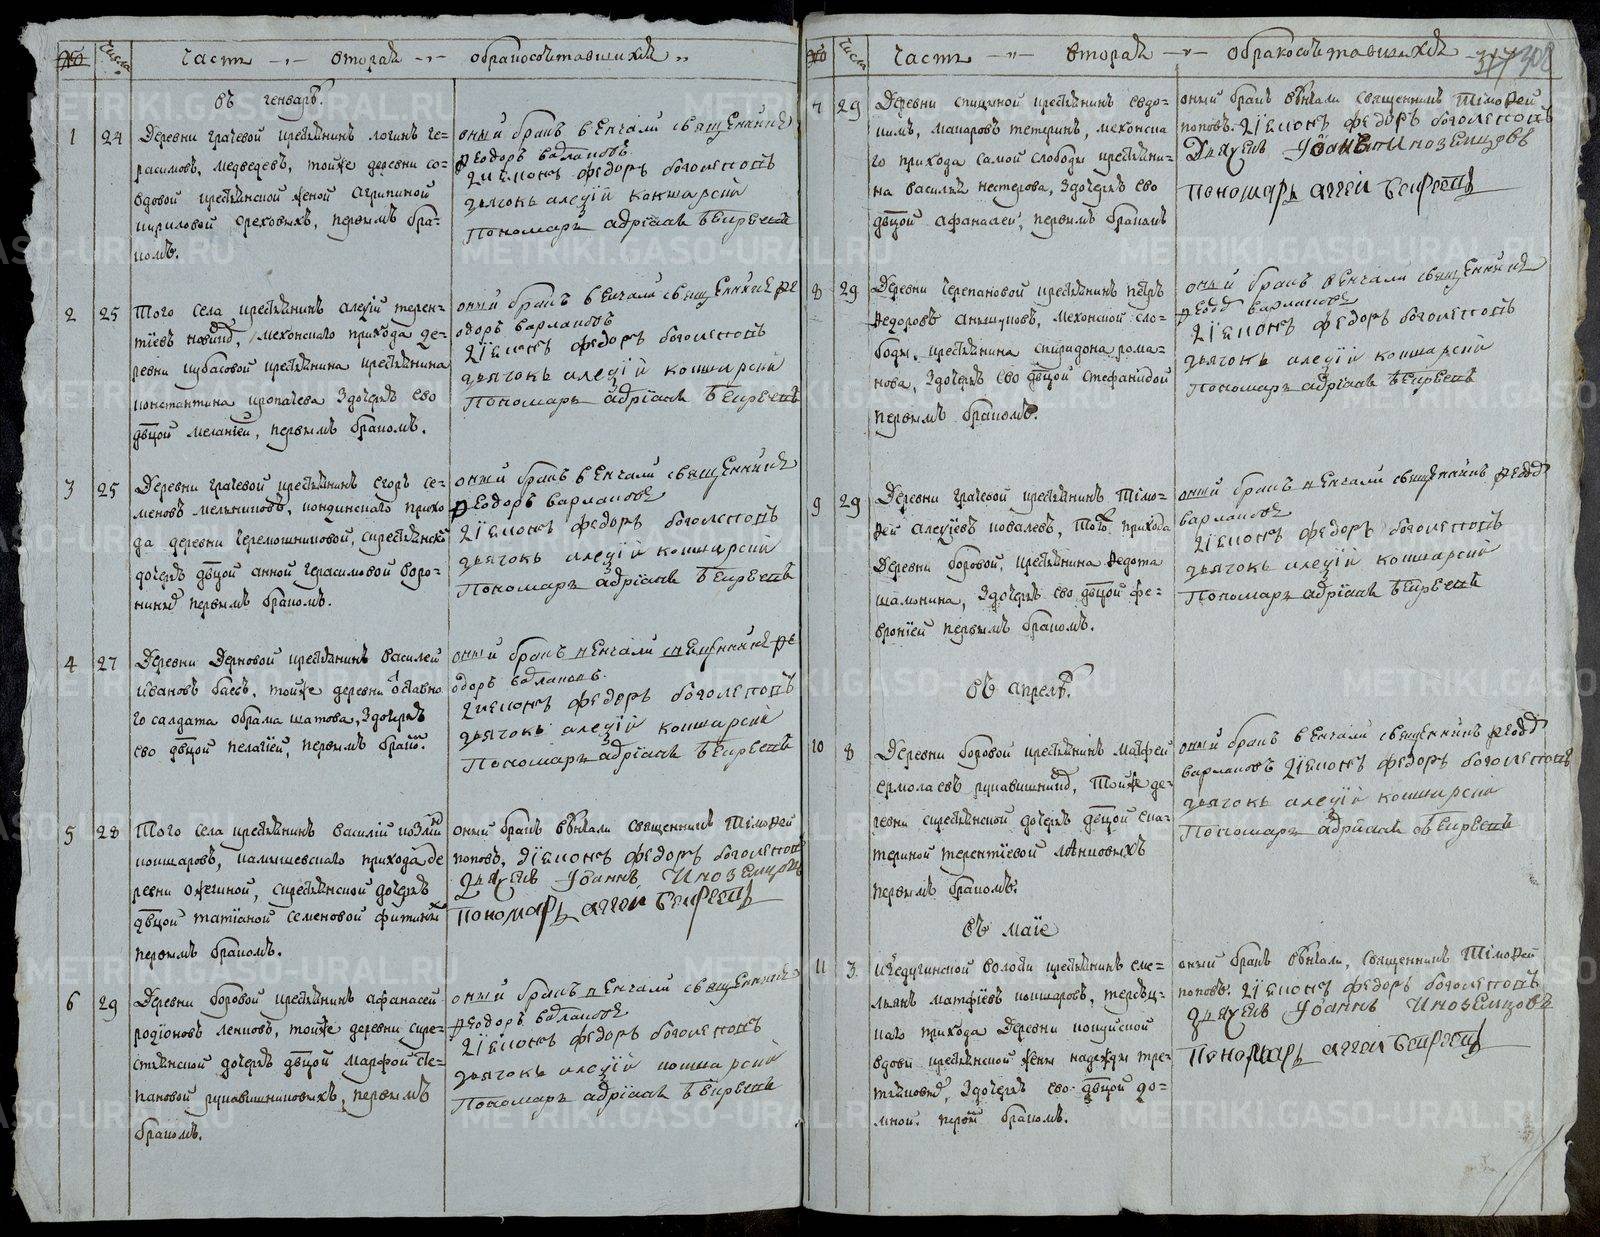 № Числа Часть -„- вторая -„- обракосочтавшихся „
въ генварѣ.
1 24 Деревни грачевой крестьянинъ логинъ ге-
расимовъ, медведевъ, тойже деревни со-
вдовой крестьянской женой агрипиной
кириловой ореховыхъ, первымъ бра-
комъ.
оный бракъ венчали священникъ
Феодоръ варлаковъ
діаконъ федоръ боголеповъ
дьячокъ алеѯій кокшарскій
Пономарь адріанъ
2 25 Того села крестьянинъ алеѯій терен-
тіевъ мехонскаго прихода де-
ревни кубасовой крестьянина крестьянина
константина кропачева здочерью ево
двцой меланіей, первымъ бракомъ.
оный бракъ венчали священникъ Фе
одоръ варлаковъ
діаконъ федоръ боголеповъ
дьячокъ алеѯій кокшарскій
Пономарь адріанъ
3 25 Деревни грачевой крестьянинъ егоръ се-
меновъ мельниковъ, кондинскаго прихо
да деревни черемошниковой, скрестьянской
дочерью двцой анной герасимовой воро-
ниной первымъ бракомъ.
оный бракъ венчали священникъ
Феодоръ варлаковъ
діаконъ федоръ боголеповъ
дьячокъ алеѯій кокшарскій
Пономарь адріанъ
4 27 Деревни Дерновой крестьянинъ василей
ивановъ баевъ, тойже деревни отставно
го салдата абрама шатова, здочерью
ево двцой пелагіей, первымъ брако.
оный бракъ венчали священникъ Фе
одоръ варлаковъ.
діаконъ федоръ боголеповъ
дьячокъ алеѯій кокшарскій
Пономарь адріанъ
5 28 Того села крестьянинъ василій козмин
кокшаровъ, камышевскаго прихода де
ревни ожгиной, скрестьянской дочерью
двцой татіаной семеновой
первымъ бракомъ.
оный бракъ вѣнчали священникъ Тімоѳей
поповъ, діаконъ федоръ боголеповъ
дьячекъ Іоаннъ Иноземцовъ
Пономарь аггеи
6 29 Деревни боровой крестьянинъ афанасей
родіоновъ ленковъ, тойже деревни скре-
стьянской дочерью двцой марфой сте-
пановой рукавишниковыхъ, первымъ
бракомъ.
оный бракъ венчали священникъ
Феодоръ варлаковъ
діаконъ федоръ боголеповъ
дьячокъ алеѯій кокшарскій
Пономарь адріанъ
№ Числа Часть -„- вторая -„- обракосочтавшихся 317 308
7 29 Деревни спицыной крестьянинъ евдо-
кимъ, макаровъ тетеринъ, мехонска
го прихода самой слободы крестьяни-
на василья нестерова, здочерью ево
двцой афанасеи, первымъ бракомъ
оный бракъ вѣнчали священникъ Тімоѳей
поповъ. діаконъ федоръ боголеповъ
Дьячекъ Іоаннъ Иноземцовъ
Пономарь аггеи
8 29 Деревни черепановой крестьянинъ петръ
ѳедоровъ мехонской сло-
боды, крестьянина спиридона рома-
нова, здочерью ево двцой стефанидой
первымъ бракомъ.
оный бракъ венчали священникъ
Феодо варлаковъ
діаконъ федоръ боголеповъ
дьячокъ алеѯій кокшарскій
Пономарь адріанъ
9 29 Деревни грачевой крестьянинъ Тімо-
ѳей алеѯіевъ ковалевъ, того прихода
Деревни боровой, крестьянина ѳедота
шамонина, здочерью ево двцой фе-
вроніей первымъ бракомъ.
оный бракъ венчали священникъ Феодо
варлаковъ
діаконъ федоръ боголеповъ
дьячокъ алеѯій кокшарскій
Пономарь адріанъ
въ апрелѣ.
10 8 Деревни боровой крестьянинъ матфей
ермолаевъ рукавишник, тойже де-
ревни скрестьянской дочерью двцой ека-
териной терентіевой
первымъ бракомъ.
оный бракъ венчали священникъ Феодо
варлаковъ діаконъ федоръ боголеповъ
дьячокъ алеѯій кокшарскій
Пономарь адріанъ
въ маіе
11 3 волости крестьянинъ еме-
льянъ матфіевъ кокшаровъ,
каго прихода деревни
вдовы крестьянской жены надежды тре-
здочерью ево двцой до-
мной. первы бракомъ.
оный бракъ вѣнчали, священникъ Тімоѳей
поповъ. діаконъ федоръ боголеповъ
дьячекъ Іоаннъ Иноземцовъ
Пономарь аггеи
METRIKI.GASO-URAL.RU